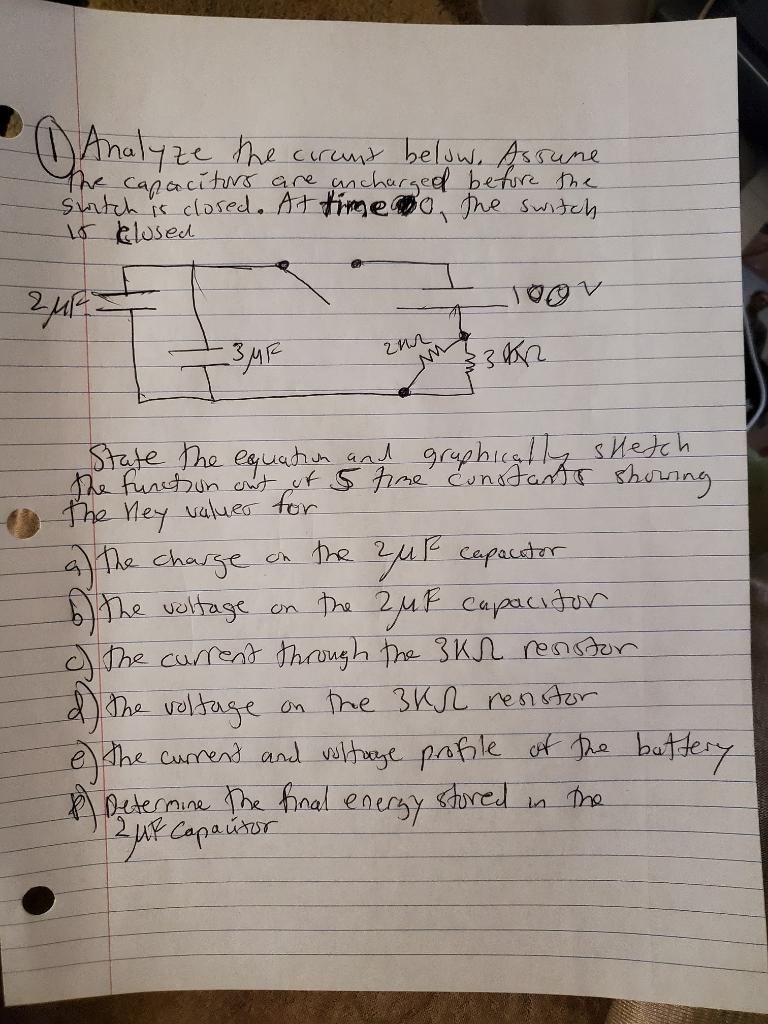 ① Analyze the circuit below. Assume
the capacitors are uncharged before the
switch is closed. At time 0, the switch
is closed
2μF
100V
3μF
2KΩ
3KΩ
State the equation and graphically sketch
the function out of 5 time constants showing
the key values for
a) the charge on the 2μF capacitor
b) the voltage on the 2μF capacitor
c) the current through the 3KΩ resistor
d) the voltage on the 3KΩ resistor
e) the current and voltage profile of the battery
f) Determine the final energy stored in the
2μF capacitor